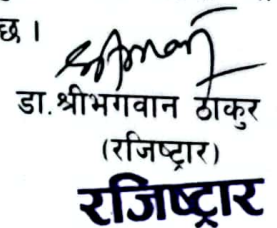 छ।
डा. श्रीभगवान ठाकुर
(रजिष्ट्रार)
रजिष्ट्रार